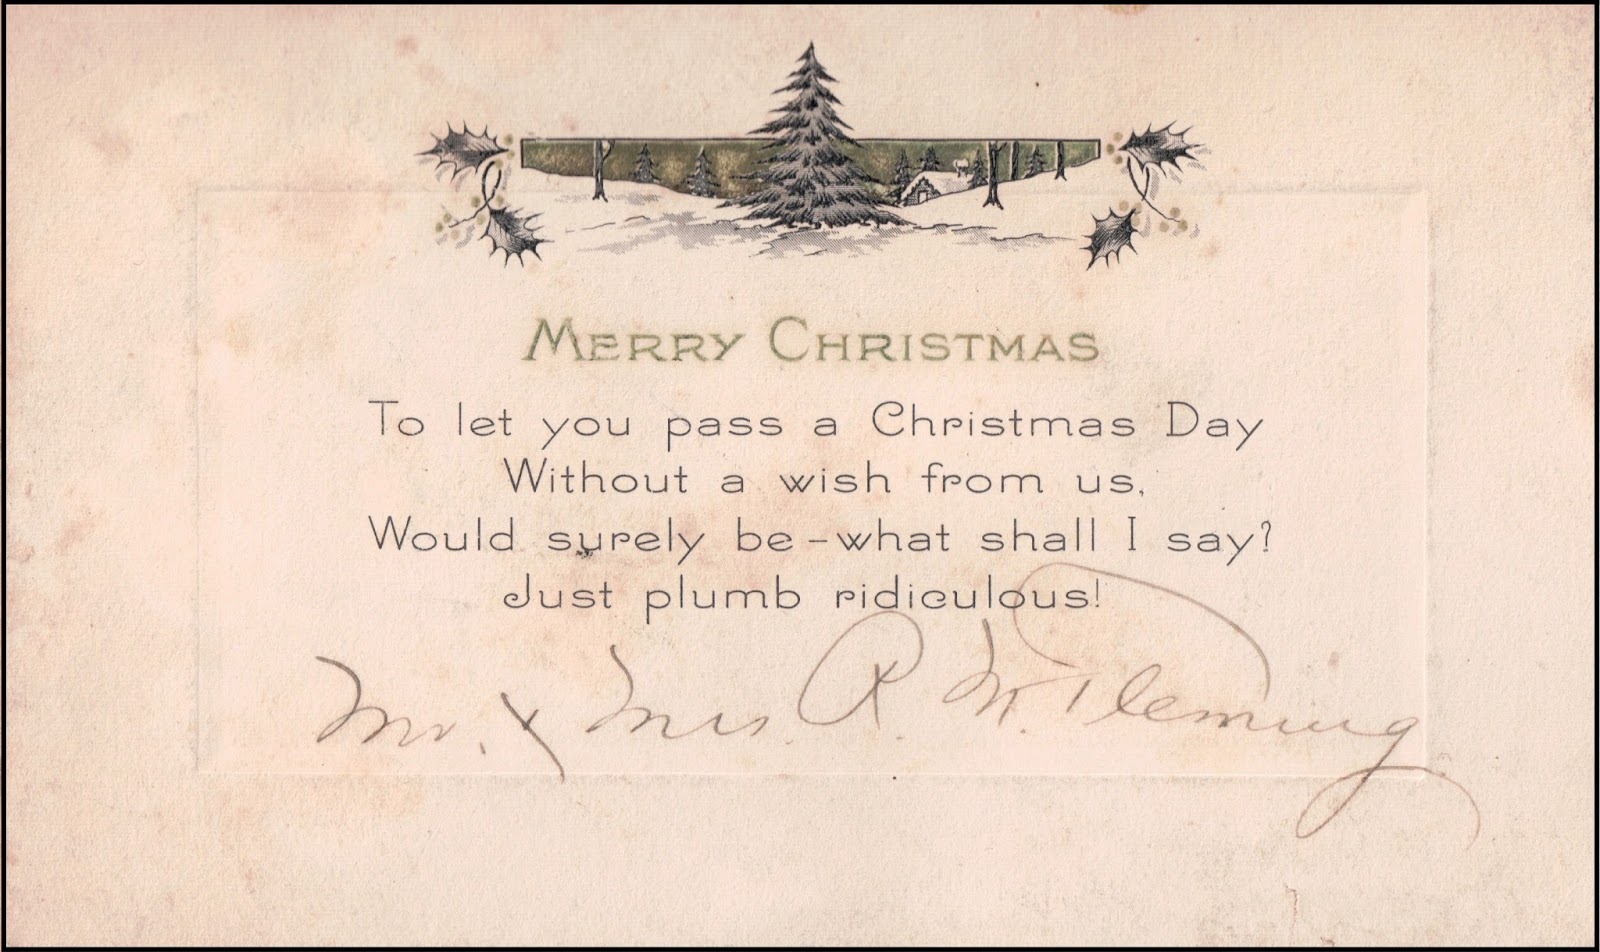 MERRY CHRISTMAS
To let you pass a Christmas Day
Without a wish from us,
Would surely be – what shall I say?
Just plumb ridiculous!
Mr. & Mrs. R. W. Fleming